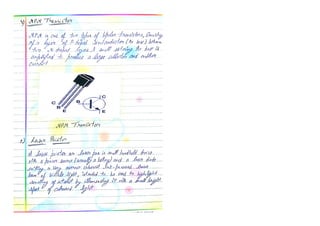 NPN Transistor
NPN is one of two types of bipolar transistors, consisting
of a layer of P-doped semiconductor (the base) between
two N-doped layers. A small current entering the base is
amplified to produce a large collector and emitter
current.
C
B
E
C
B
E
NPN Transistor
Laser Pointer
A laser pointer or laser pen is a small handheld device
with a power source (usually a battery) and a laser diode
emitting a very narrow coherent low-powered laser
beam of visible light, intended to be used to highlight
something of interest by illuminating it with a small bright
spot of coloured light.